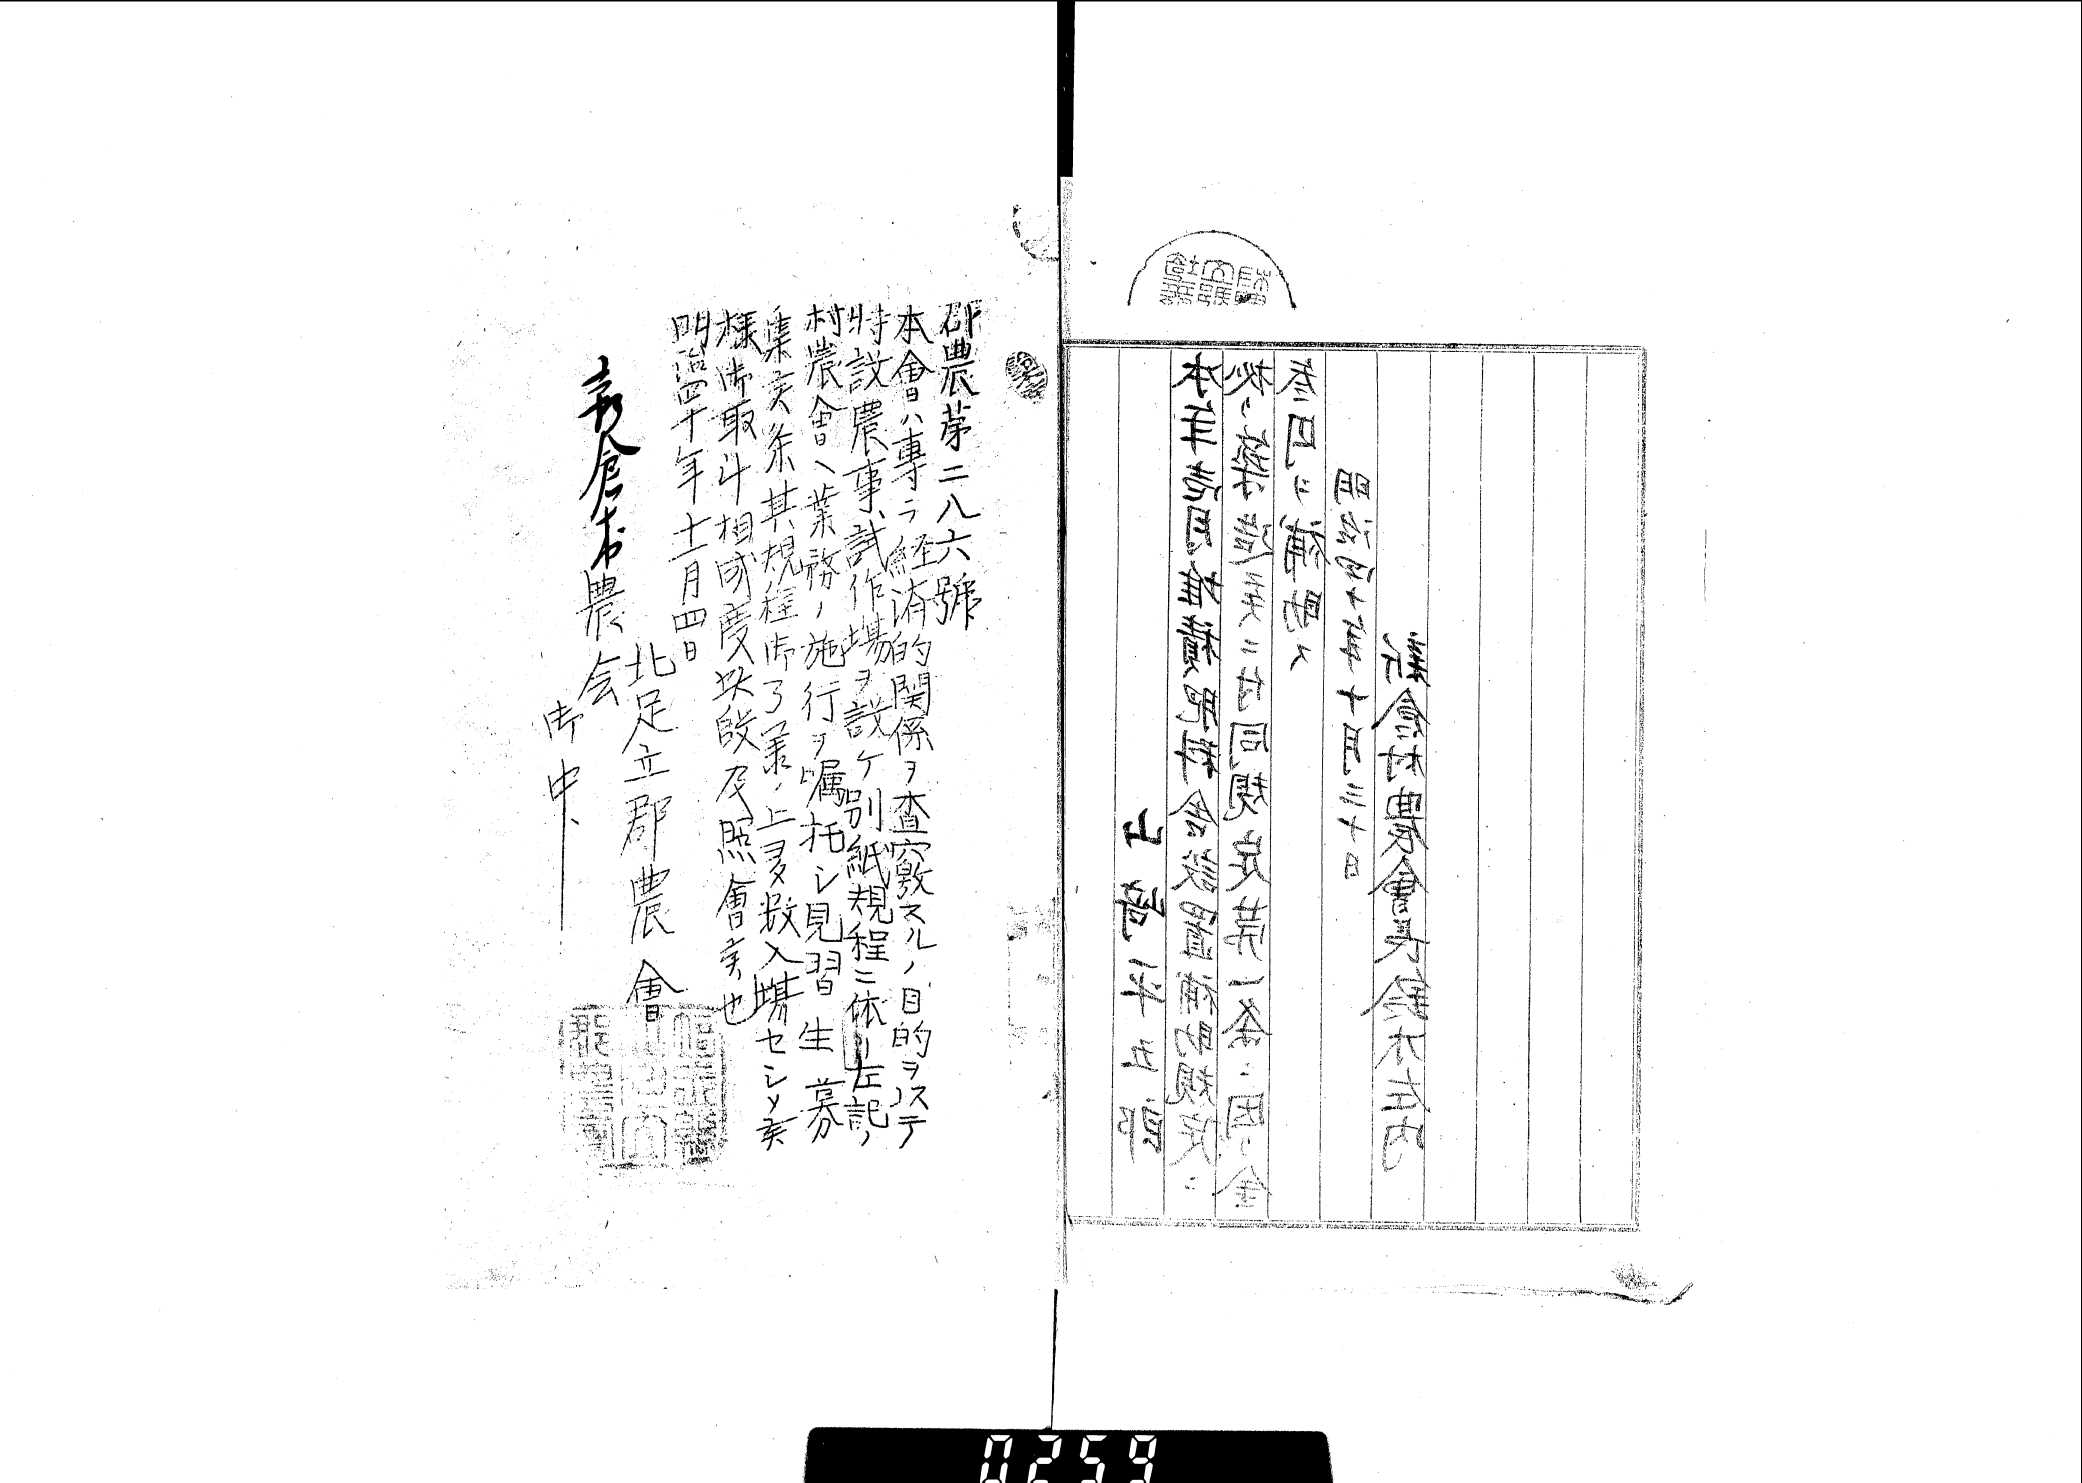 山崎半五郎
本年壱月堆積肥料舎設置補助規定ニ
拠リ築造候ニ付同規定第一条ニ因リ金
参円ヲ補助ス
明治四十年十月三十日
新倉村農會長鈴木左内
郡農第二八六號
本會ハ專ラ経済的関係ヲ査竅スルノ目的ヲ以テ
特設農事試作場ヲ設ケ別紙規程ニ依リ左記ノ
村農會ヘ業務ノ施行ヲ嘱托シ見習生募
集候条其規程御了ノ上多数入場セシメ候
様御取斗相成度此段及照會候也
明治四十年十一月四日
北足立郡農會
新倉村農会
御中
0259